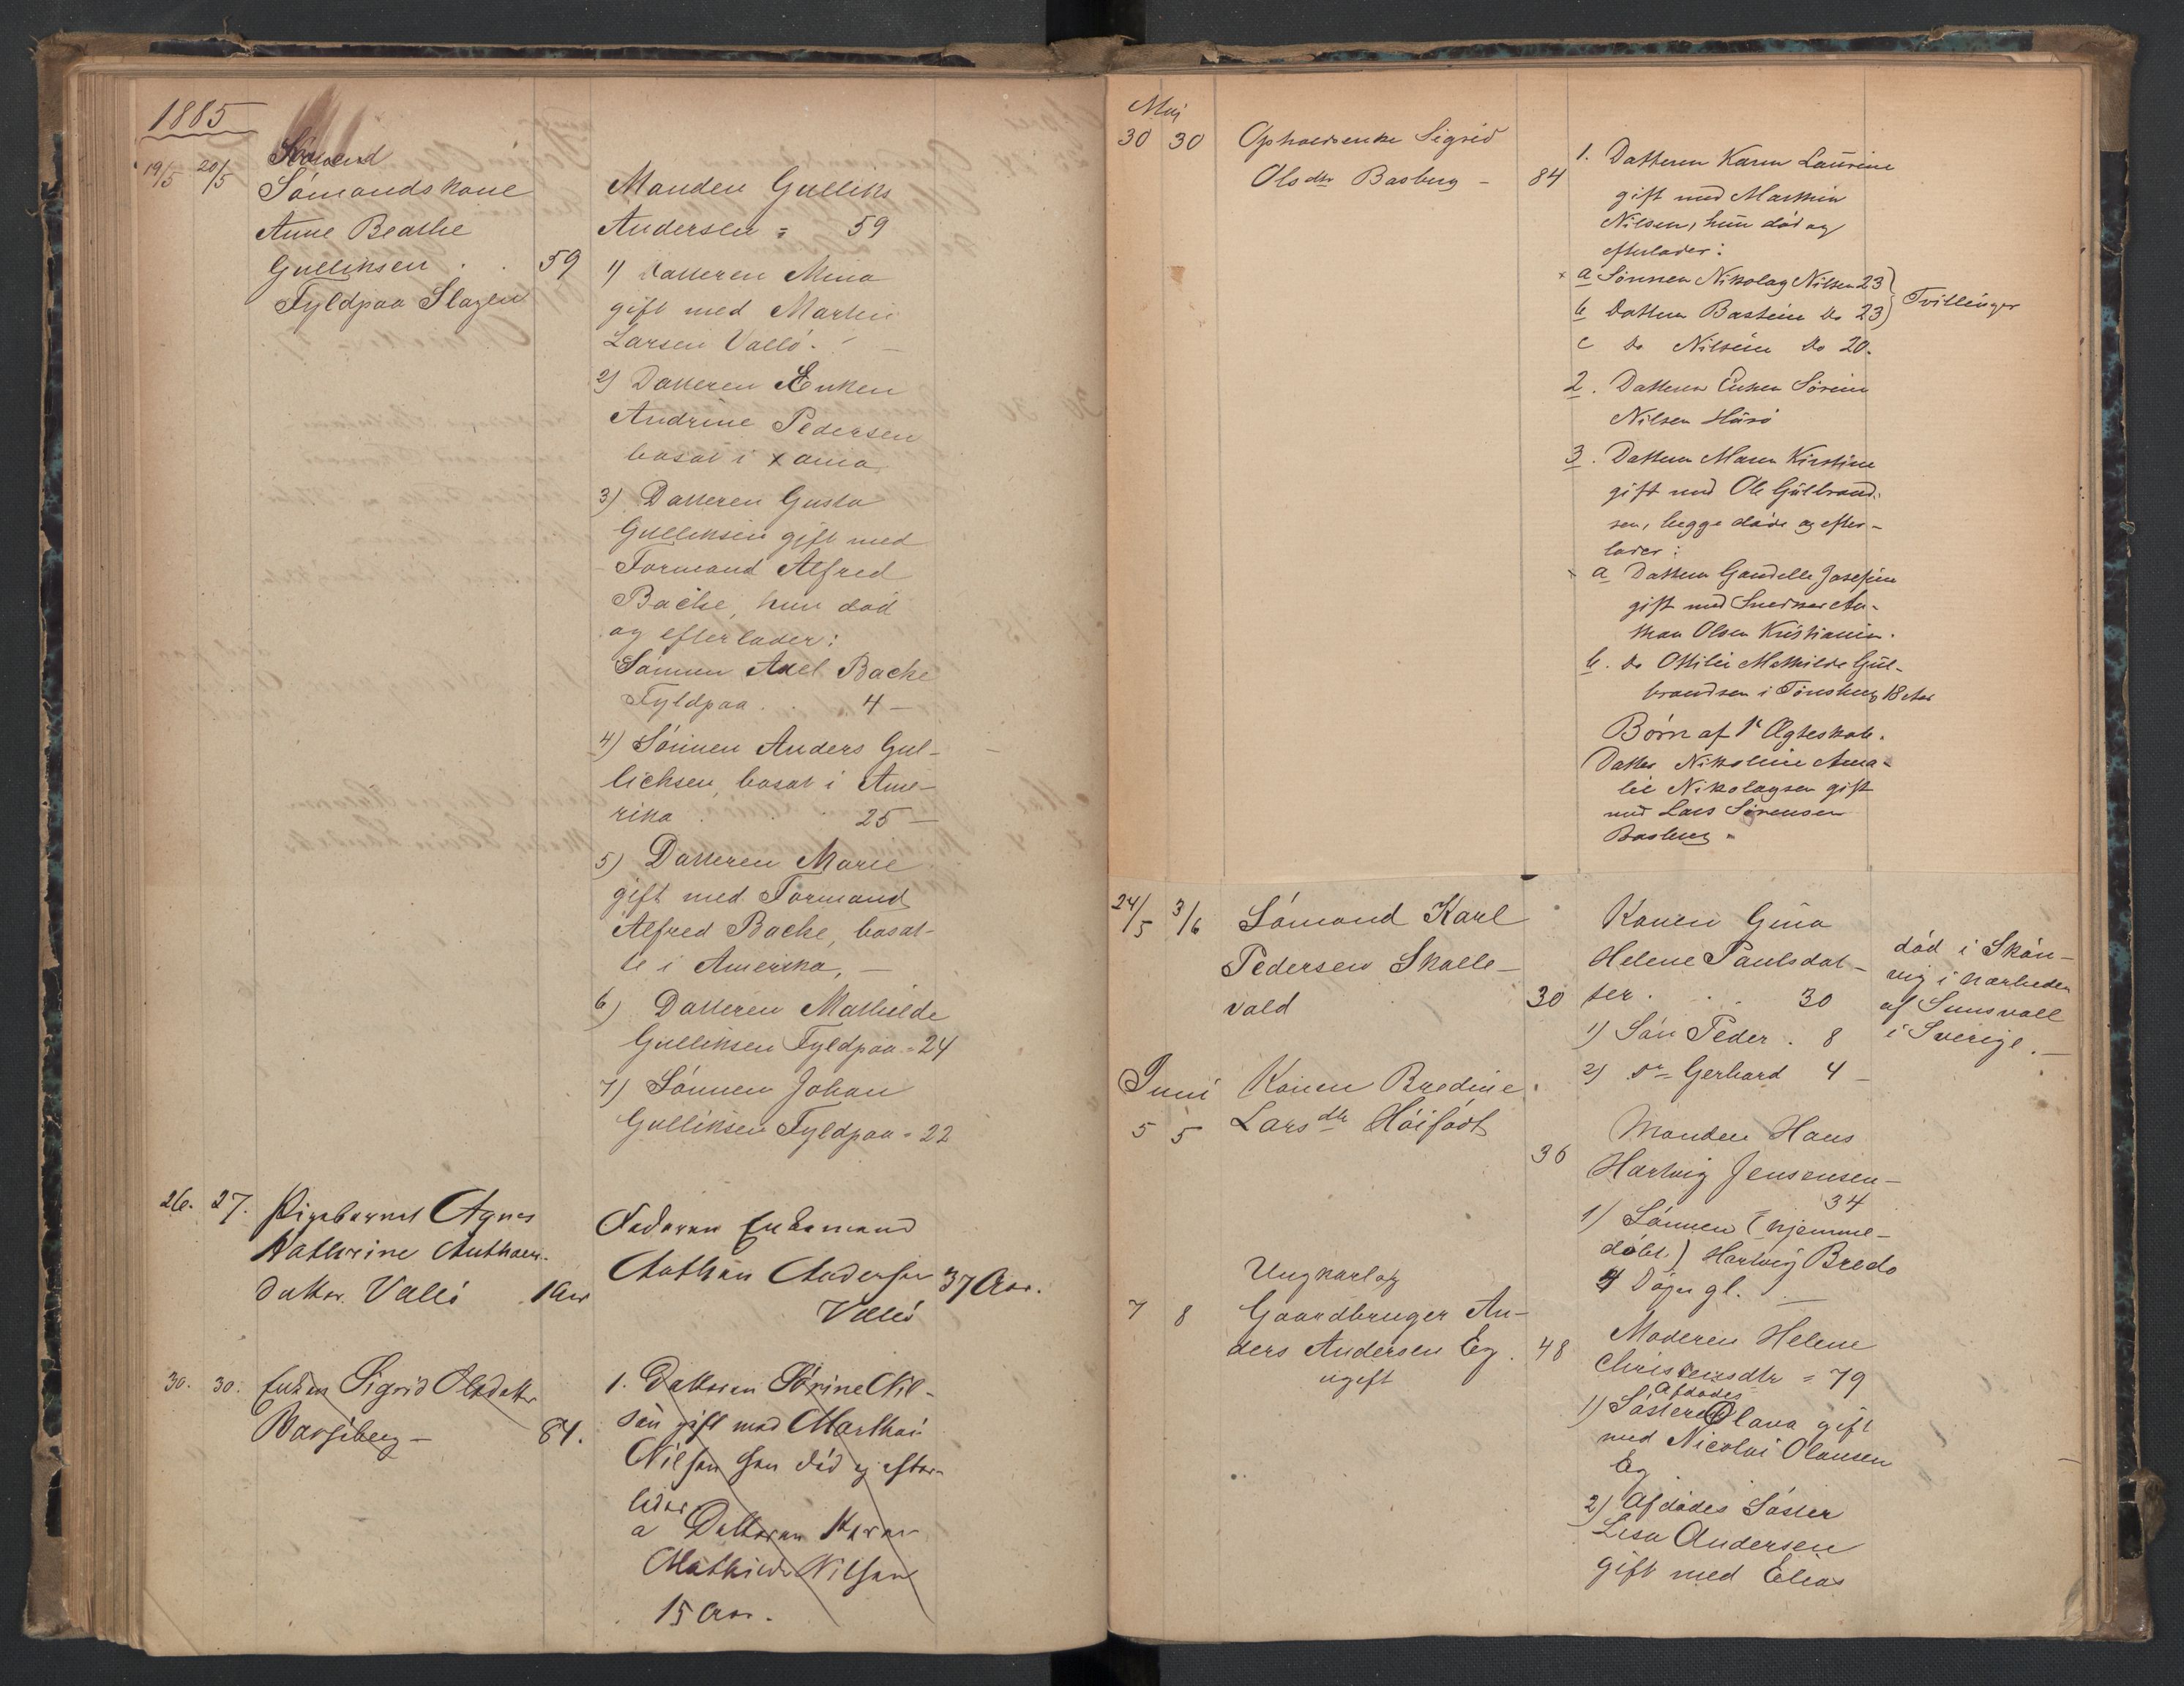 1885
19/5 20/5
Sömandskone
Anne Beathe
Gulliksen . . 59
Fyldpaa Slagen
Manden Gulliks
Andersen = 59
1) Datteren Mina
gift med Martin
Larsen Vallö. –
2) Datteren Enken
Andrine Pedersen
bosat i
3) Datteren Gusta
Gulliksen gift med
Formand Alfred
Bache, hun död
og efterlader:
Sönnen Axel Bache
Fyldpaa . . 4 –
4) Sönnen Anders Gul-
lichsen, bosat i Ame-
rika . . 25 –
5) Datteren Marie
gift med Formand
Alfred Bache, bosat-
te i Amerika, –
6) Datteren Mathilde
Gulliksen Fyldpaa = 24
7) Sönnen Johan
Gulliksen Fyldpaa = 22
26. 27. Pigebarnet Agnes
Kathrine Anthon-
datter Vallö 1 Aar
Faderen Enkemand
Anthon Andersen 37 Aar.
Vallö
30. 30. Enken Sigrid Olsdatter
Basberg – 84.
1. Datteren Sörine Nil-
sen gift med Marthin
Nilsen han död og efter-
lader
a Datteren Karen
Mathilde Nilsen
15 Aar.
Maj
30 30 Opholdsenke Sigrid
Olsdtr Basberg – 84
1. Datteren Karen Laurine
gift med Marthin
Nilsen, hun död og
efterlader:
a Sönnen Nikolay Nilsen 23
b Datteren Bastine Do 23 } Tvillinger
c Do Nilsine Do 20.
2. Datteren Enken Sörine
Nilsen Husö
3. Datteren Maren Kirstine
gift med Ole Gulbrand-
sen, begge döde og efter-
lader:
a Datteren Gandelle Josefine
gift med Snedker An-
thon Olsen Kristiania.
b. Do Ottilie Mathilde Gul-
brandsen i Tönsberg 18 Aar
Börn af 1e Ægteskab.
Datter Nikoline Ama-
lie Nikolaysen gift
med Lars Sörensen
Basberg "
24/5 3/6 Sömand Karl
Pedersen Skalle-
vald 30
Konen Gina
Helene Paulsdat-
ter . . . 30
1) Sön Peder . 8
2) do Gerhard 4 –
död i Skön-
vig i nærheden
af Sunsvall
i Sverige. –
Juni Konen Bredine
5 5 Larsdtr Höifödt 36
Manden Hans
Hartvig Jensensen –
34
1) Sönnen (hjemme-
döbt) Hartvig Bredo
4 Döjn gl. –
Ungkarl og
7 8 Gaardbruger An-
ders Andersen Eg. 48
ugift
Moderen Helene
Christensdtr = 79
Afdödes
1) Söster Olava gift
med Nicolai Olausen
Eg
2) Afdödes Söster
Lesa Andersen
gift med Elias